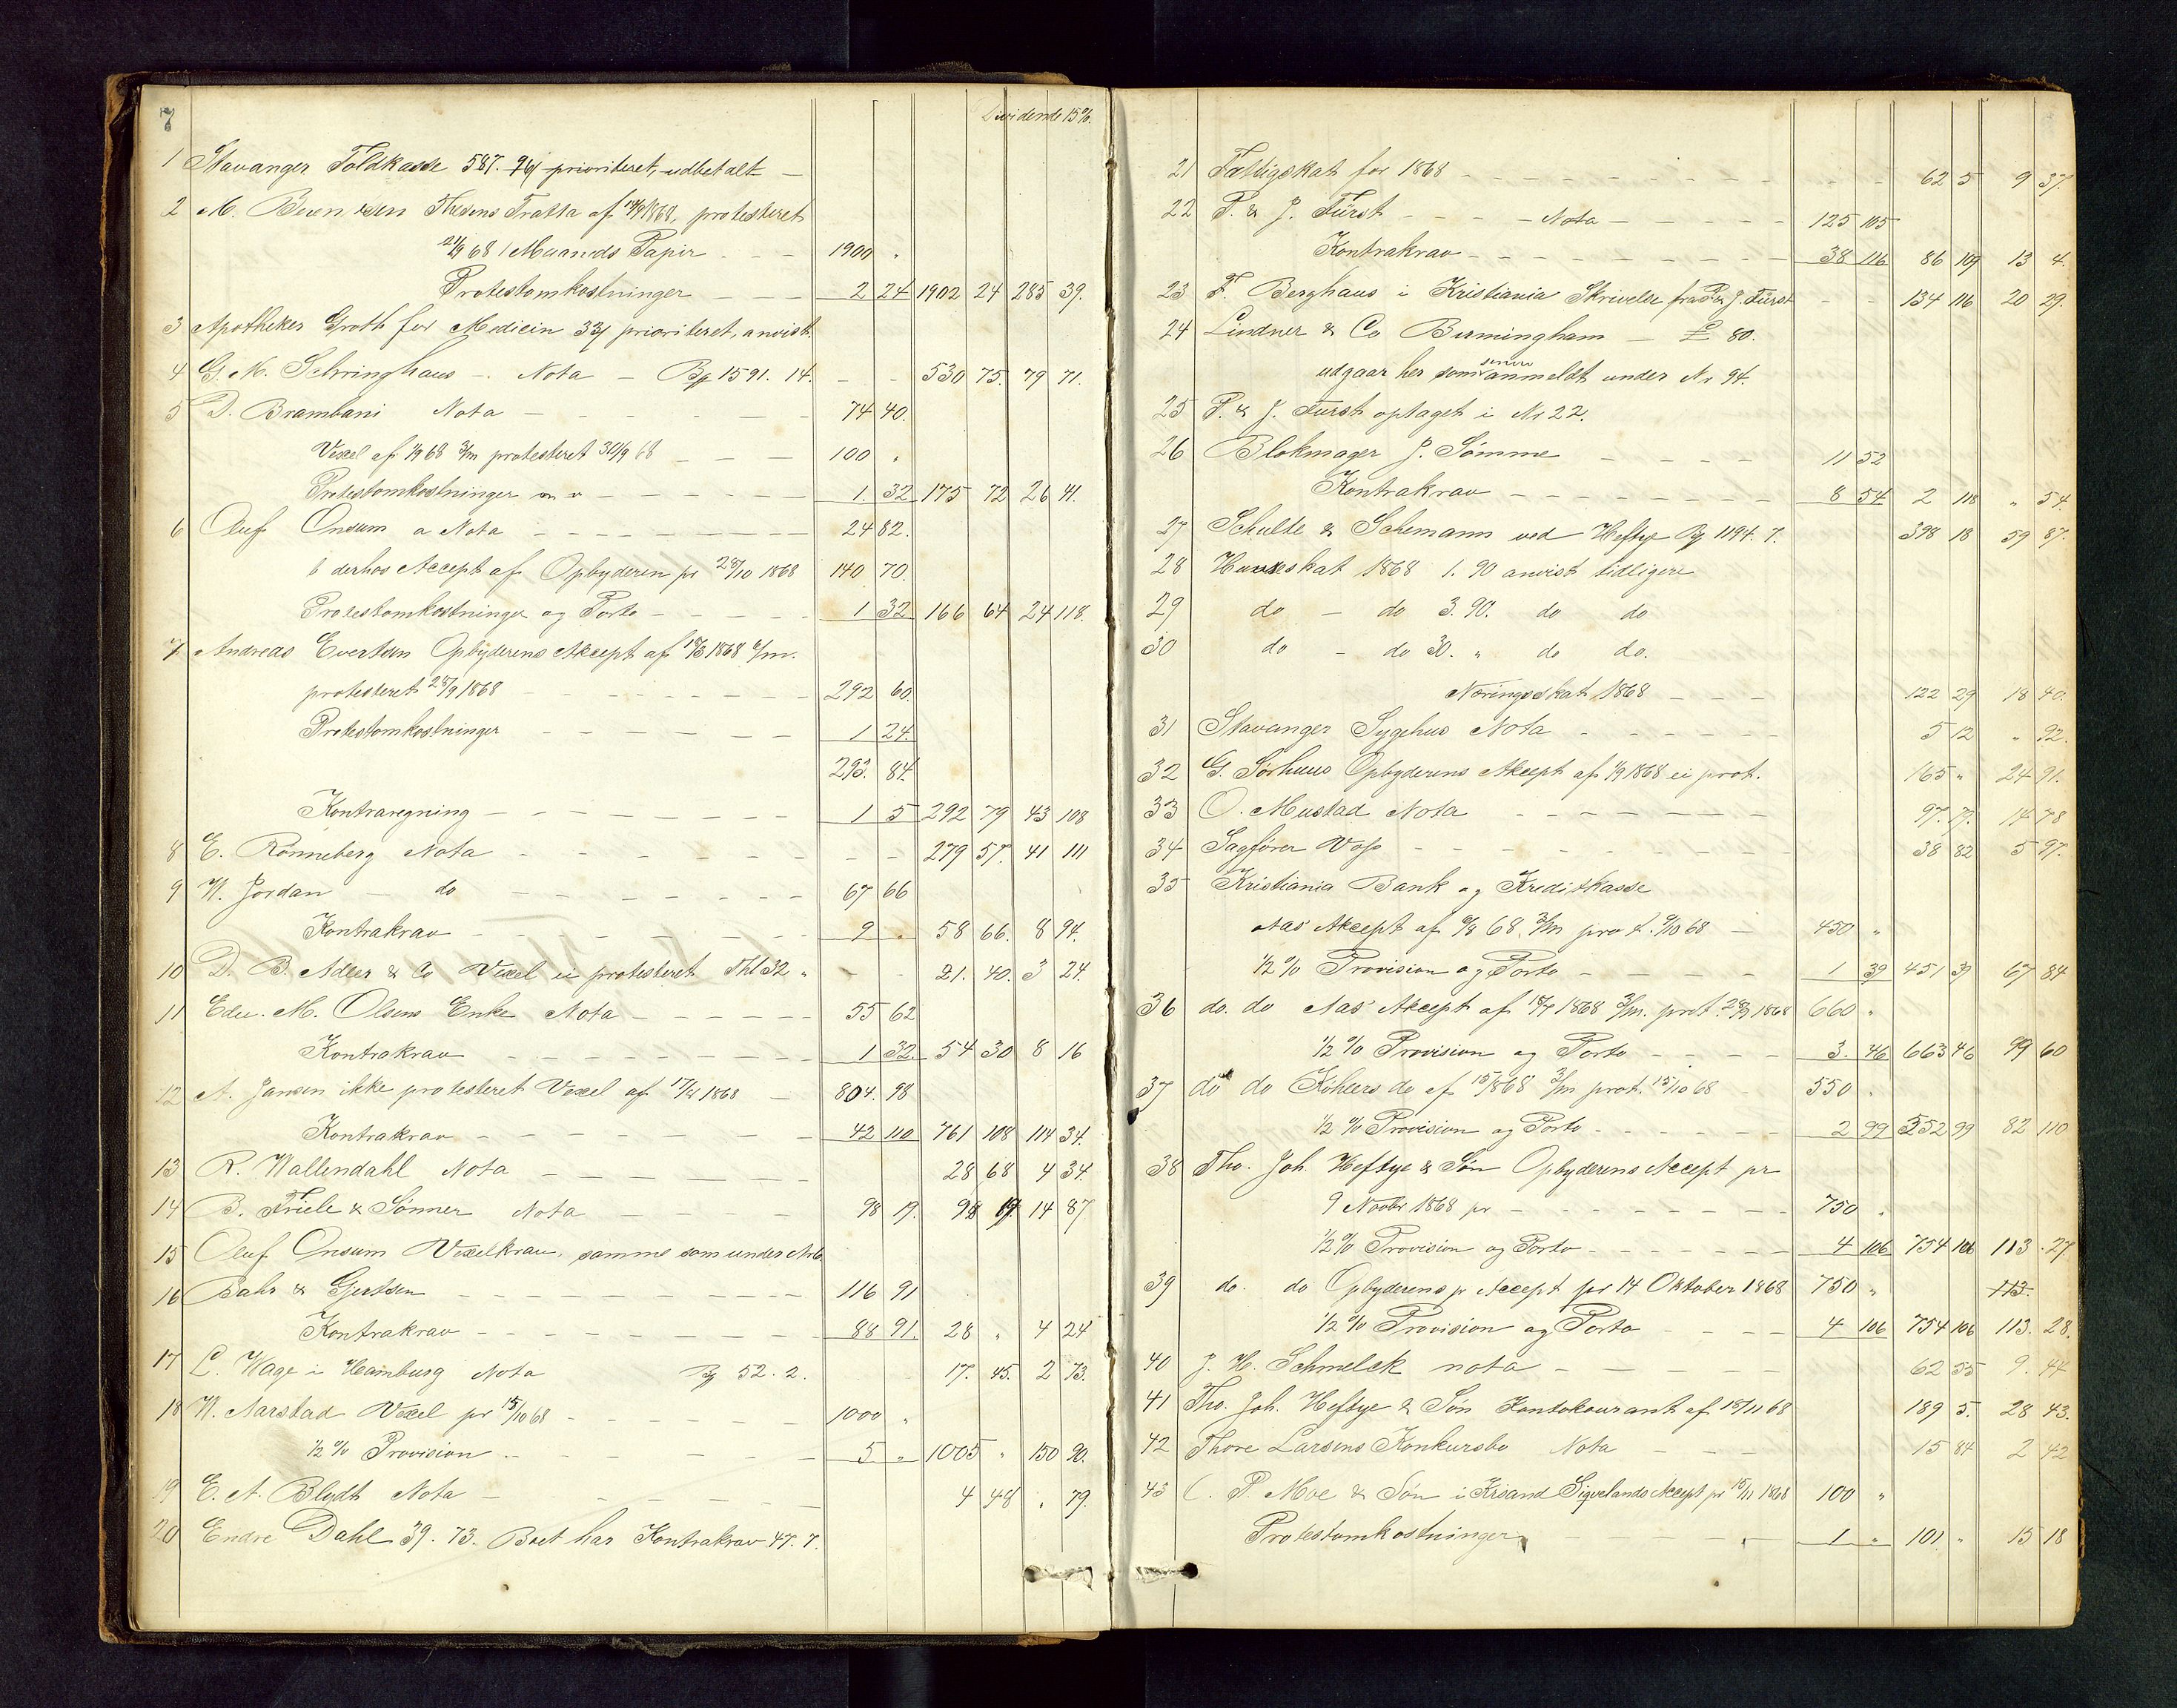 7
Dividende 15%.
1 Stavanger Toldkasse 587. 94 prioriteret, udbetalt —
2 M. Thesens Tratta af 14/9 1868, protesteret
21/9 68 1 Maaneds Papir 1900 "
Protestomkostninger 2 24 1902 24 285 39.
3 Apotheker Groth for Medicin 33 prioriteret, anvist.
4 G. M. Schringhaus — Nota — 1591. 14. 530 75. 79 71.
5 D. Brambani Nota 74 40.
Vexel af 1/9 68 3/m protesteret 30/9 68 100 "
Protestomkostninger 1. 32 175 72 26 41.
6 Oluf Onsum a Nota 24 82.
b derhos Accept af Opbyderen pr 28/10 1868 140 70.
Protestomkostninger og Porto 1 32 166 64 24 118.
7 Andreas Evertsen Opbyderens Akcept af 1868 6/m.
protesteret 28/9 1868 292 60.
Protestomkostninger 1 24.
293. 84.
Kontraregning 1 5 292 79 43 108
8 E. Rönneberg Nota 279 57. 41 111
9 W. Jordan — do 67 66
Kontrakrav 9 " 58 66. 8 94.
10 D. B. Adler & Co Vexel ei protesteret Thl 32 " 21. 40. 3 24.
11 Edv. M. Olsens Enke Nota 55 62
Kontrakrav 1 32. 54 30 8 16
12 A. Jansen ikke protesteret Vexel af 1868 — 804. 98
Kontrakrav 42 110 761 108 114 34.
13 R. Wallendahl Nota 28 68 4 34.
14 B. Friele & Sönner Nota 98 19. 98 19. 14 87
15 Oluf Onsum Vexelkrav, samme som under No 6
16 Bahr & Gjertsen 116 91
Kontrakrav 88 91. 28 " 4 24
17 C. Wage i Hamburg Nota 52. 2. 17. 45. 2 73.
18 W. Aarstad Vexel pr 15/10 68 1000 "
1/2 % Provision 5 " 1005 " 150 90.
19 E. A. Blydt Nota — 4 48 " 79.
20 Endre Dahl 39. 73. Boet har Kontrakrav 47. 7.
21 Fattigskat for 1868 62 5 9 37.
22 P. & J. Fürst Nota 125 105
Kontrakrav 38 116 86 109 13 4.
23 F. Berghaus i Kristiania Skrivelse fra P. & J. Fürst 134 116 20 29.
24 Lindner & Co Birmingham — £ 80.
udgaar her som senere anmeldt under No 94.
25 P. & J. Fürst optaget i No 22.
26 Blokmager J. Sömme 11 52
Kontrakrav 8 54 2 118 " 54.
27 Schulte & Schemann ved Heftye 1194. 7. 398 18 59 87.
28 Huusskat 1868 1. 90 anvist tidligere
29 do — do 3. 90. do do
30 do — do 30. " do do.
Næringsskat 1868 122 29 18 40.
31 Stavanger Sygehus Nota 5 12 " 92.
32 G. Sörhuus Opbyderens Akcept af 1/9 1868 ei prot. 165 " 24 91.
33 O. Mustad Nota 97. 17. 14 78
34 Sagförer Voss 38 82 5 97.
35 Kristiania Bank og Kreditkasse
Aas' Akcept af 68. 3/m prot. 9/10 68 — 450 "
1/2 % Provision og Porto 1 39 451 39 67 84
36 do. do Aas' Akcept af 1868 3/m. prot. 1868 660 "
1/2 % Provision og Porto 3. 46 663 46 99 60
37 do do Köhlers do af 15/ 868 3/m prot. 15/10 68 550 "
1/2 % Provision og Porto 2 99 552 99 82 110
38 Tho. Joh. Heftye & Sön Opbyderens Accept pr
9 Novbr 1868 pr 750 "
1/2 % Provision og Porto 4 106 754 106 113. 27.
39 do. do Opbyderens Accept pr 14 Oktober 1868 750 " 113.
1/2 % Provision og Porto 4 106 754 106 113. 28.
40 J. H. Schmelck nota — 62 55 9. 44
41 Tho. Joh. Heftye & Sön Kontokourant af 18/11 68 189 5. 28 43.
42 Thore Larsens Konkursbo Nota 15 84 2 42
43 C. P. Moe & Sön i Krsand Sigvelands Accept pr 15/11 1868 100 "
Protestomkostninger 1 " 101 " 15 18